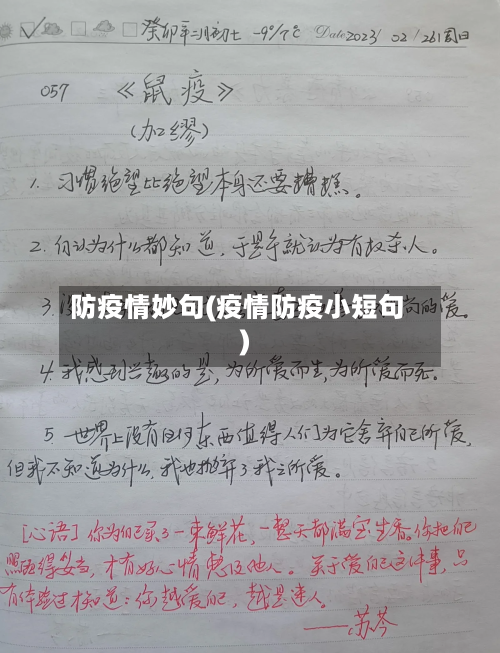 癸卯年二月初七 -9°/7℃ Date 2023/ 02 / 26 周日
057 《鼠疫》
(加缪)
1. 习惯绝望比绝望本身还要糟糕。
2. 自认为什么都知道,于是乎就认为有权杀人。
防疫情妙句(疫情防疫小短句
)
3. 的爱。
4. 我感到兴趣的是,为所爱而生,为所爱而死。
5. 世界上没有任何东西值得人们为它舍弃自己所爱,
但我不知道为什么,我也抛弃了我之所爱。
[心语] 你为自己买了一束鲜花,一整天都满室生香。你把自己
照顾得妥当,才有好心情惠及他人。关于爱自己这件事,只
有体验过才知道:你越爱自己,越是迷人。
——苏芩